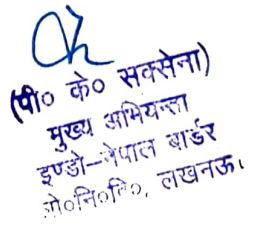 (पी० के० सक्सेना)
मुख्य अभियन्ता
इण्डो-नेपाल बार्डर
लो०नि०वि०, लखनऊ।